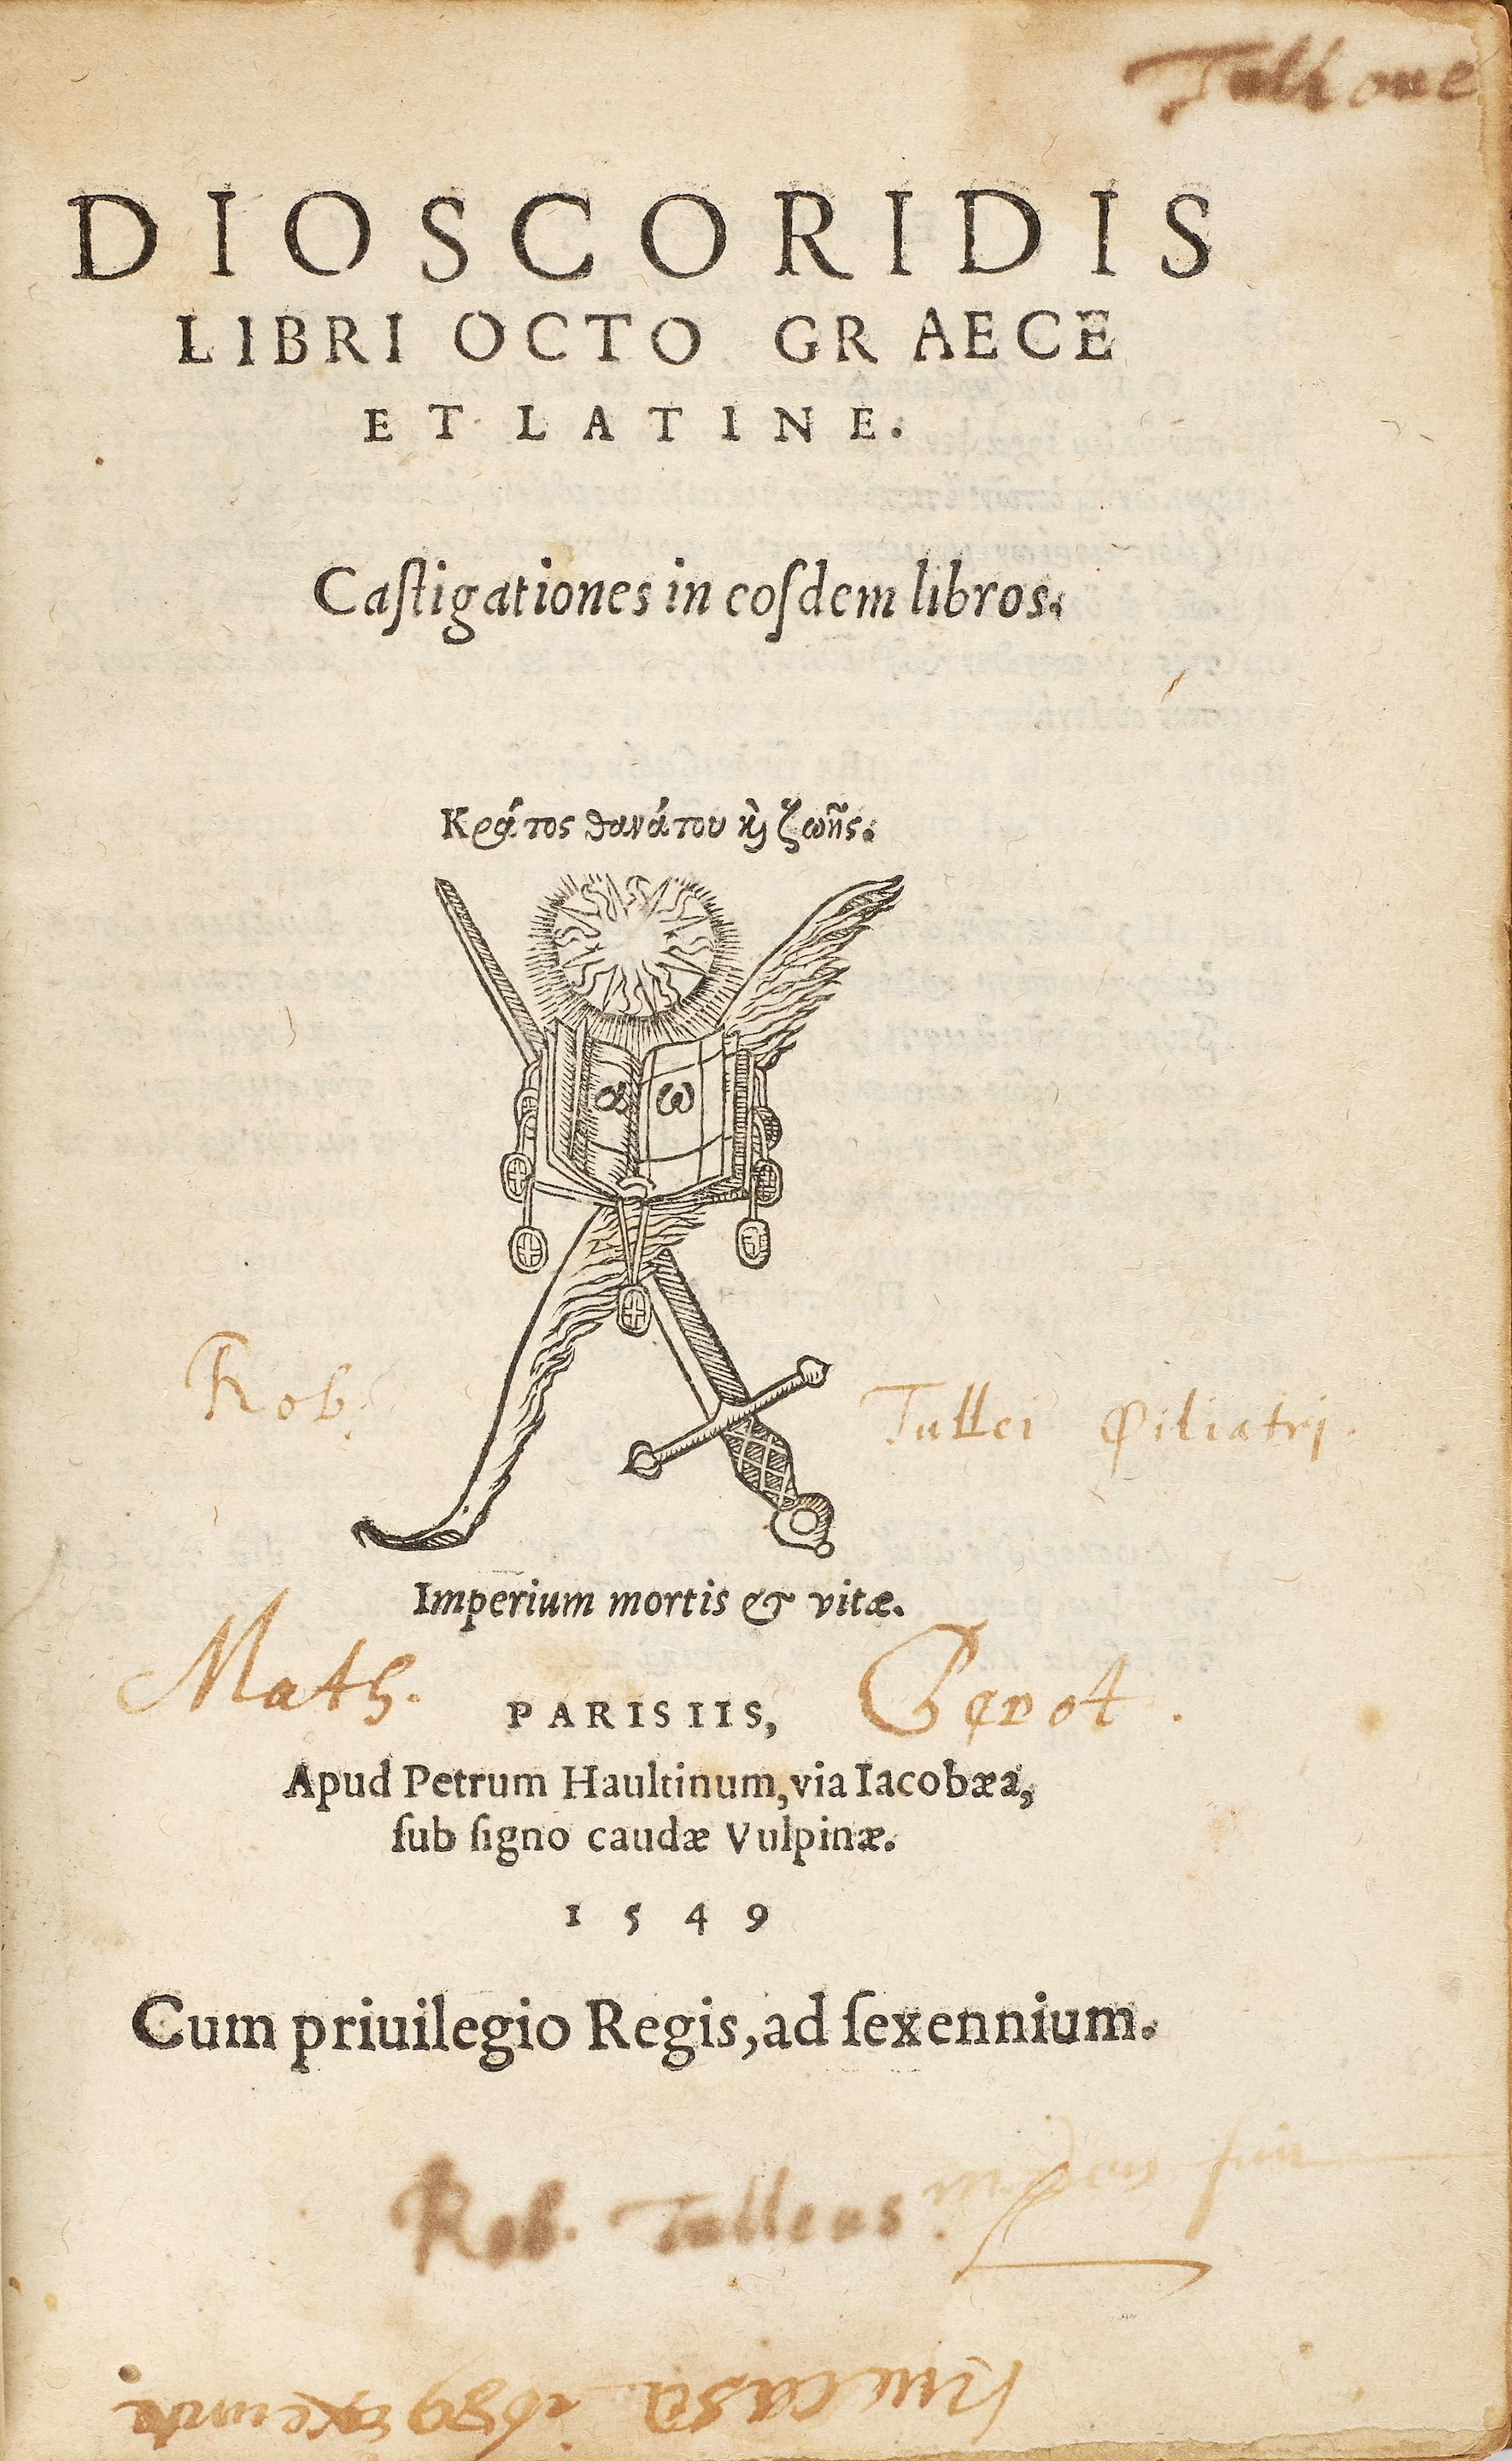 DIOSCORIDIS
LIBRI OCTO GRAECE
ET LATINE.
Caſtigationes in eoſdem libros.
Κράτος θανάτου ϗ̀ ζωῆς.
α ω
Rob. Tullei Philiatri.
Imperium mortis & vitæ.
Math.
PARISIIS,
Apud Petrum Haultinum, via Iacobæa,
ſub ſigno caudæ Vulpinæ.
1549
Cum priuilegio Regis, ad ſexennium.
Rob. Tulleus.
1689